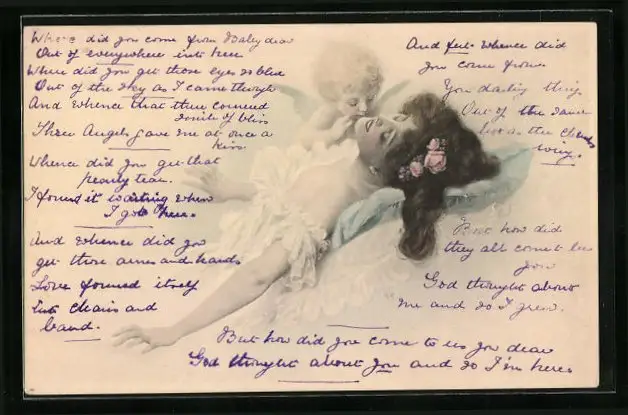 Where did you come from Baby dear
Out of everywhere into here
Where did you get those eyes so blue
Out of the sky as I came through
And whence that three cornered
smile of bliss
Three Angels gave me at once a
kiss.
Whence did you get that
pearly tear.
I found it waiting when
I got here.
And whence did you
get those arms and hands
Love formed itself
Into chains and
band.
And feet whence did
you come from
You darling thing
Out of the same
box as the cherubs
wing.
But how did
they all come to be
you
God thought about
me and so I grew.
But how did you come to us you dear
God thought about you and so I'm here